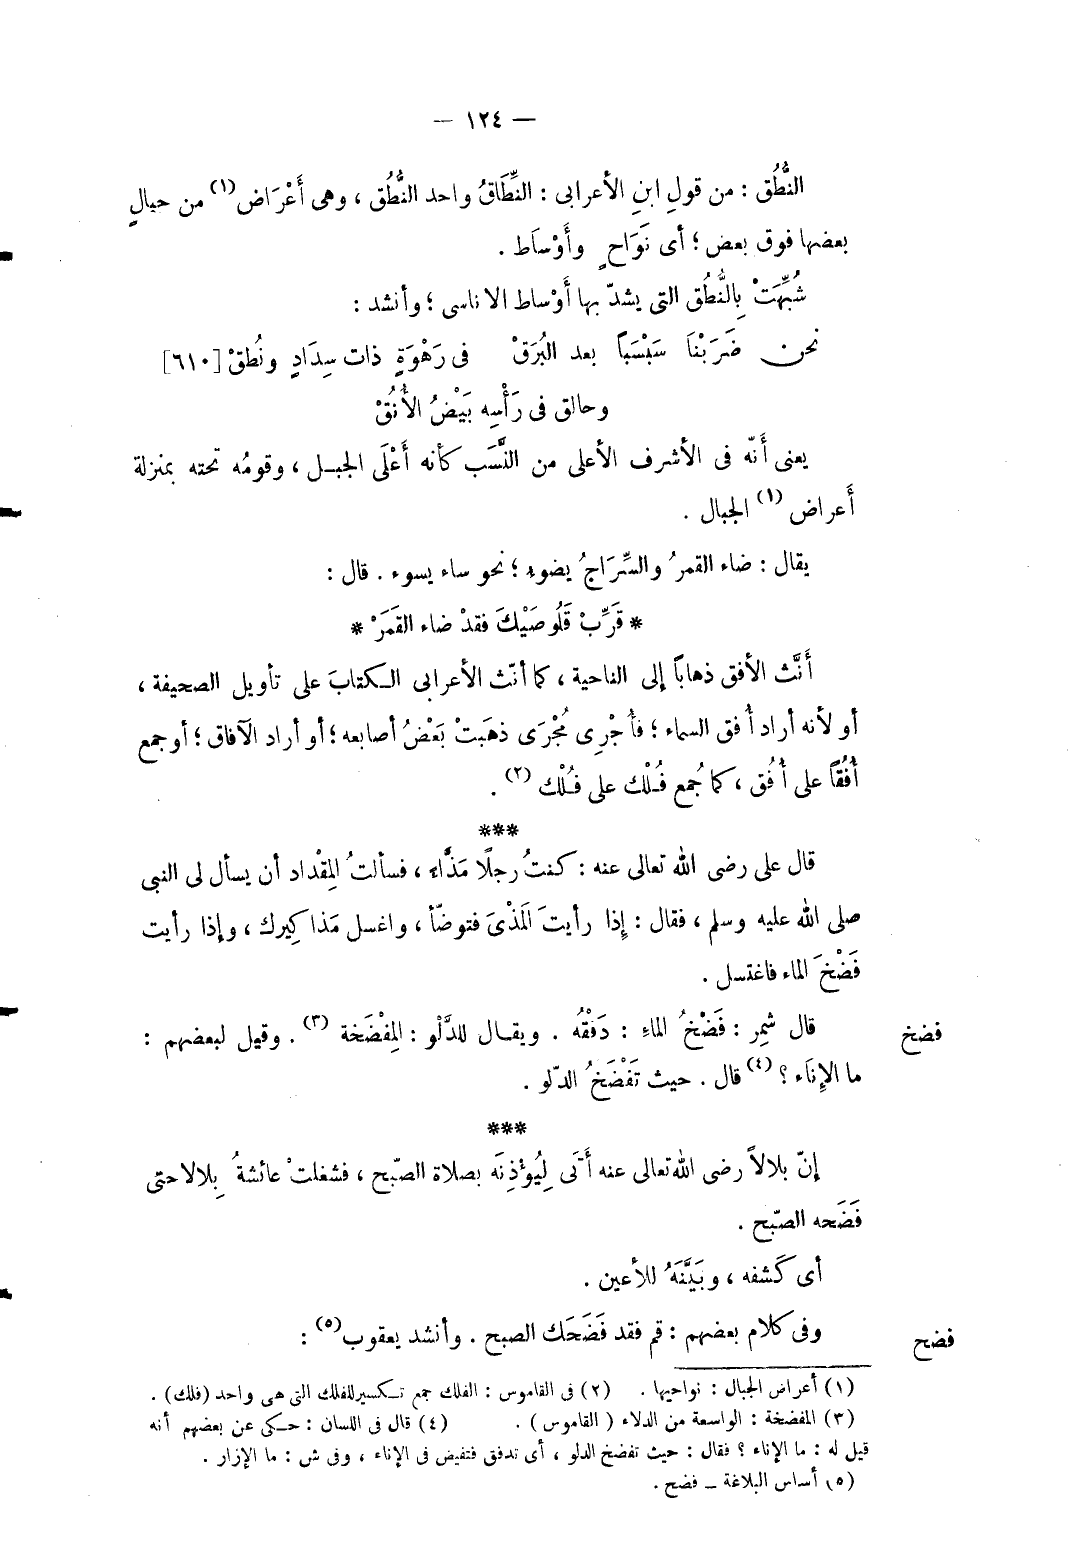 — ١٢٤ —
النُّطُق : من قولِ ابنِ الأعرابى : النِّطَاقُ واحد النُّطُق ، وهى أَعْرَاض (١) من حبالٍ
بعضها فوق بعض ؛ أى نَوَاحٍ وأَوْسَاط .
شُبِّهَتْ بِالنُّطُق التى يشدّ بها أَوْساط الاناسى ؛ وأنشد :
نحن ضَرَبْنَا سَبْسَبًا بعد البُرَقْ فى رَهْوَةٍ ذات سِدَادٍ ونُطقْ [٦١٠]
وحالق فى رَأْسِه بَيْضُ الأُنُقْ
يعنى أَنّه فى الأشرف الأعلى من النَّسَب كأنه أَعْلَى الجبل ، وقومُه تحته بمنزلة
أَعراض (١) الجبال .
يقال : ضاء القمرُ والسِّرَاجُ يضوء ؛ نحو ساء يسوء . قال :
* قَرِّبْ قَلُوصَيْكَ فقدْ ضاء القَمَرْ *
أَنَّث الأفق ذهاباً إلى الناحية ، كما أنّث الأعرابى الكتابَ على تأويل الصحيفة ،
أو لأنه أراد أُفق السماء ؛ فأُجْرِى مُجْرَى ذهَبتْ بَعْضُ أصابعه ؛ أو أراد الآفاق ؛ أو جمع
أُفُقًا على أُفُق ، كما جُمع فُلْك على فُلْك (٢) .
***
قال على رضى الله تعالى عنه : كنتُ رجلًا مَذَّاء ، فسألتُ المِقْداد أن يسأل لى النبى
صلى الله عليه وسلم ، فقال : إِذا رأيتَ المَذْىَ فتوضّأ ، واغسل مَذاكِيرك ، وإذا رأيت
فَضْخَ الماء فاغتسل .
فضخ
قال شمِر : فَضْخُ الماءِ : دَفْقُه . ويقال للدَّلْو : المِفْضَخة (٣) . وقيل لبعضهم :
ما الإِنَاء ؟ (٤) قال . حيث تَفْضَخُ الدّلو .
***
إنّ بلالاً رضى الله تعالى عنه أَتَى لِيُؤْذِنَه بصلاة الصّبح ، فشغلتْ عائشةُ بِلالا حتى
فَضَحه الصّبح .
أى كَشفه ، وبَيَّنَهُ للأعين .
فضح
وفى كلام بعضهم : قم فقد فَضَحَك الصبح . وأنشد يعقوب (٥) :
(١) أعراض الجبال : نواحيها . (٢) فى القاموس : الفلك جمع تكسير للفلك التى هى واحد (فلك) .
(٣) المفضخة : الواسعة من الدلاء ( القاموس ) . (٤) قال فى اللسان : حكى عن بعضهم أنه
قيل له : ما الإناء ؟ فقال : حيث تفضخ الدلو ، أى تدفق فتفيض فى الإناء ، وفى ش : ما الإزار .
(٥) أساس البلاغة – فضح .